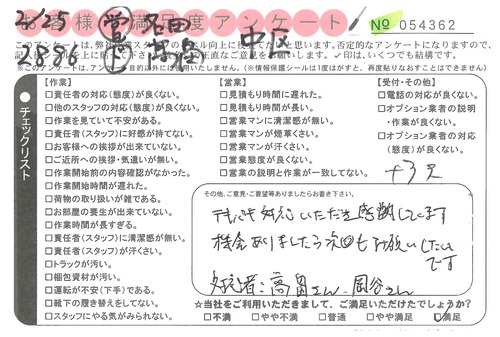 お客様満足度アンケート
No 054362
4/25
2836
中区
このアンケートは、弊社
※このアンケートは、アンケート目的以外には使用いたしません。(※情報保護シールは1度はがすと、再度貼りなおすことはできません)
チェックリスト
【作業】
□責任者の対応(態度)が良くない。
□他のスタッフの対応(態度)が良くない。
□作業を見ていて不安がある。
□責任者(スタッフ)に好感が持てない。
□お客様への挨拶が出来ていない。
□ご近所への挨拶・気遣いが無い。
□作業開始前の内容確認がなかった。
□作業開始時間が遅れた。
□荷物の取り扱いが雑である。
□お部屋の養生が出来ていない。
□作業時間が長すぎる。
□責任者(スタッフ)に清潔感が無い。
□責任者(スタッフ)が汗くさい。
□トラックが汚い。
□梱包資材が汚い。
□運転が不安(下手)である。
□靴下の履き替えをしてない。
□スタッフにやる気がみられない。
【営業】
□見積もり時間に遅れた。
□見積もり時間が長い。
□営業マンに清潔感が無い。
□営業マンが煙草くさい。
□営業マンが汗くさい。
□営業態度が良くない。
□営業の説明と作業が一致してない。
【受付・その他】
□電話の対応が良くない。
□オプション業者の説明
・作業が良くない。
□オプション業者の対応
(態度)が良くない。
その他、ご意見・ご要望等ありましたらお書き下さい。
対応いただき感謝しています
機会ありましたら次回もお願いしたい
です
対応者:高畠さん、岡谷さん
☆当社をご利用いただきまして、ご満足いただけたでしょうか?
□不満 □やや不満 □普通 □やや満足 □満足